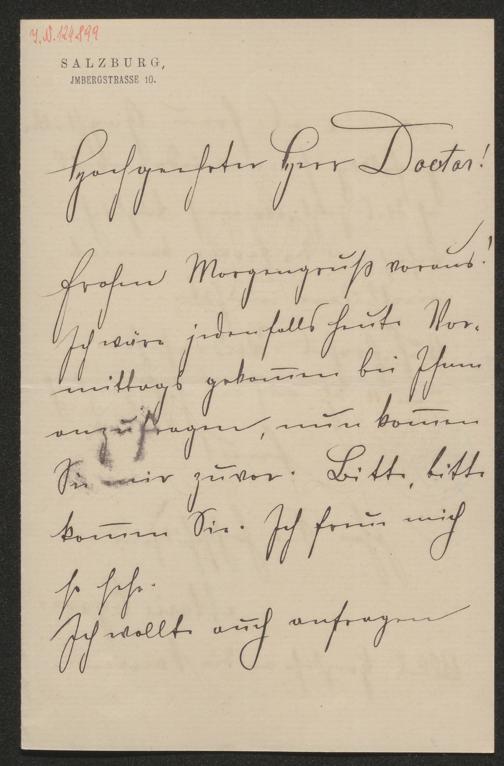 J.N. 124899
SALZBURG,
JMBERGSTRASSE 10.
Hochgeehrter Herr Doctor!
frohen Morgengruß voraus!
Ich wäre jedenfalls heute Vor-
mittags gekom̅en bei Ihnen
anzufragen, nun kom̅en
Sie mir zuvor. Bitte, bitte
kom̅en Sie. Ich freue mich
so sehr.
Ich wollte auch anfragen